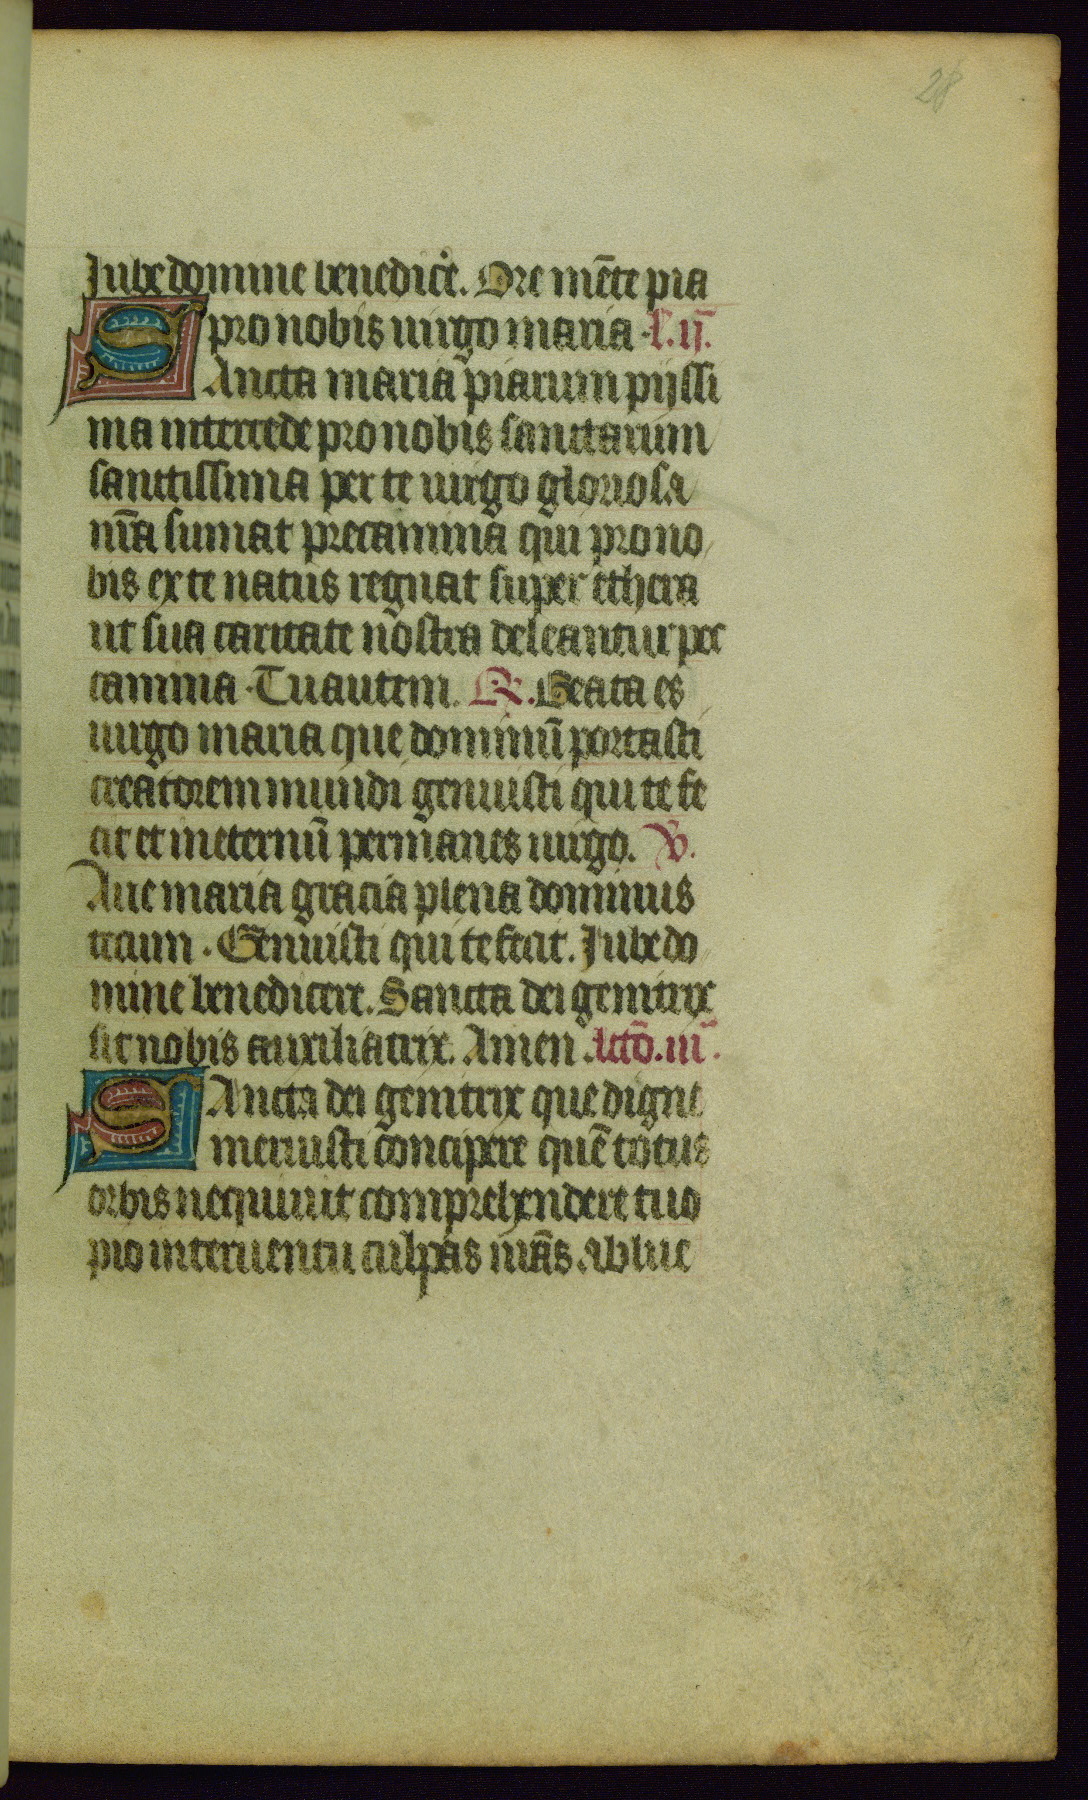 28
Iube domine benedic̄e. Ore mēte pia
pro nobis uirgo maria. l. ij.
SAncta maria piarum pijssi
ma intercede pro nobis sanctarum
sanctissima per te uirgo gloriosa
nr̄a sumat precamina qui pro no
bis ex te natus regnat super ethera
ut sua caritate nostra deleantur pec
camina. Tu autem. R. Beata es
uirgo maria que dominū portasti
creatorem mundi genuisti qui te fe
cit et ineternū permanes uirgo. V.
Aue maria gracia plena dominus
tecum. Genuisti qui te fecit. Iube do
mine benedicere. Sancta dei genitrix
sit nobis auxiliatrix. Amen. lctō. iij.
SAncta dei genitrix que digne
meruisti concipere quē totus
orbis nequiuit comprehendere tuo
pio interuentu culpas nr̄as ablue